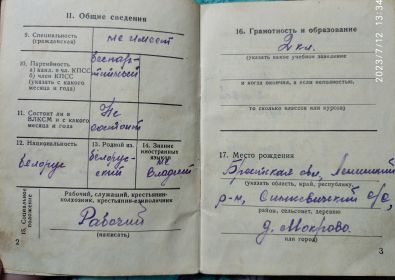 II. Общие сведения
9. Специальность
(гражданская)
не имеет
10. Партийность
а) канд. и чл. КПСС
б) член КПСС
(указать с какого
месяца и года)
беспар-
тийный
11. Состоит ли в
ВЛКСМ и с какого
месяца и года
Не
состоит
12. Национальность
белорус
13. Родной яз.
белорус-
ский
14. Знание
иностранных
языков
не
владеет
15. Социальное
положение
Рабочий, служащий, крестьянин-
колхозник, крестьянин-единоличник
Рабочий
(написать)
2
16. Грамотность и образование
2 кл.
(указать какое учебное заведение
и когда окончил, а если неполностью,
то сколько классов или курсов)
17. Место рождения
Брестская обл, Ленинский
(указать область, край, республику,
р-н, Синкевичский с/с,
район, сельсовет, деревню
д. Мокрово
или город)
3
2023/7/12 13:34